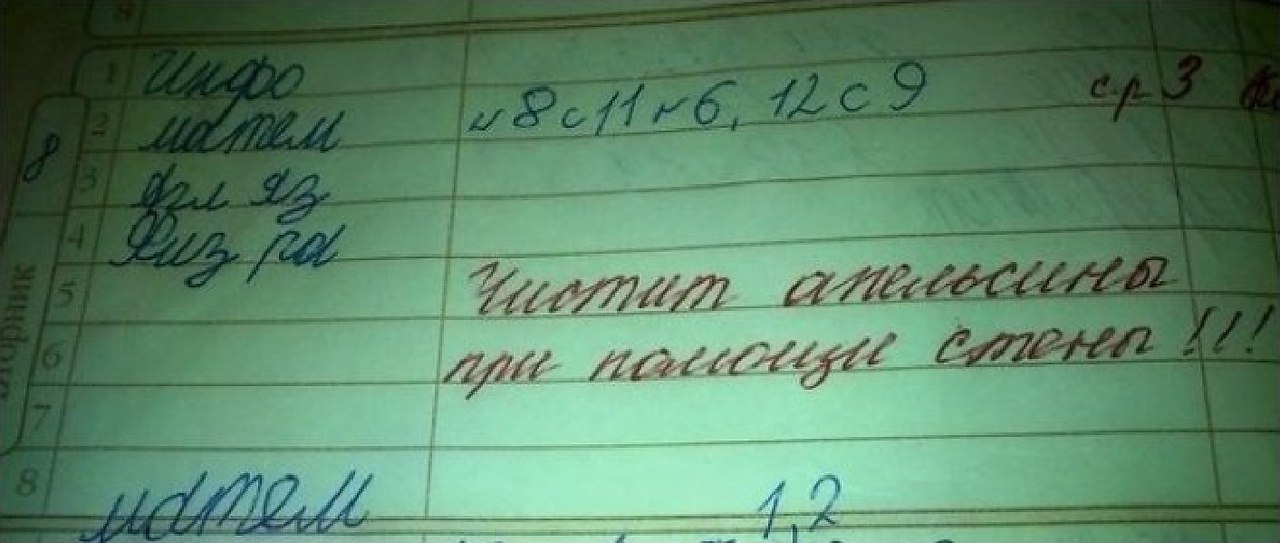 8
1 Инфо
2 матем № 8 с 11 № 6, 12 с 9 ср 3
8
3 Агл яз
4 Физ ра
5 Чистит апельсины
6 при помощи стены!!!
вторник
7
8 матем 1,2